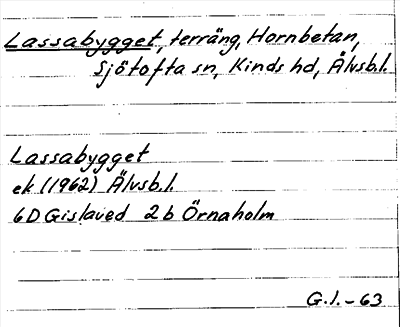 Lassabygget, terräng, Hornbetan,
Sjötofta sn, Kinds hd, Älvsb.l.
Lassabygget
ek (1962) Älvsb.l.
6D Gislaved 2b Örnaholm
G.l.-63